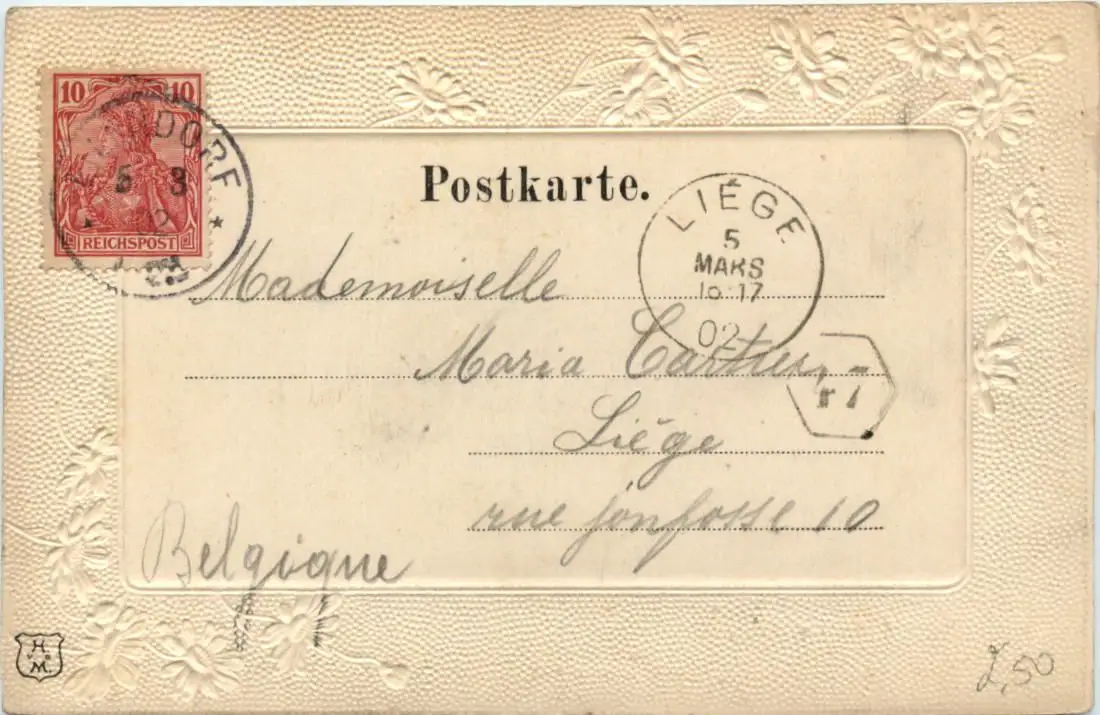 10 10
REICHSPOST
DORF
5 3
Postkarte.
LIÉGE
5
MARS
16-17
02
Mademoiselle
Maria
Liége
rue Jonfosse 10
Belgique
H.
M.
2,50